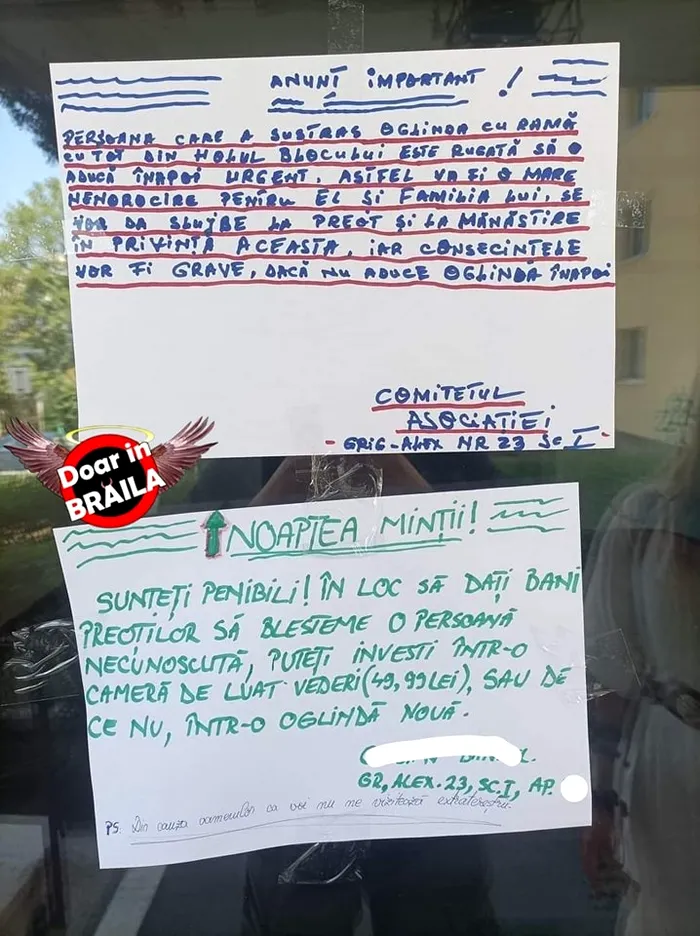 ANUNȚ IMPORTANT !
PERSOANA CARE A SUSTRAS OGLINDA CU RAMĂ
CU TOT DIN HOLUL BLOCULUI ESTE RUGATĂ SĂ O
ADUCĂ ÎNAPOI URGENT, ASTFEL VA FI O MARE
NENOROCIRE PENTRU EL ȘI FAMILIA LUI, SE
VOR DA SLUJBE LA PREOT ȘI LA MĂNĂSTIRE
ÎN PRIVINȚA ACEASTA, IAR CONSECINȚELE
VOR FI GRAVE, DACĂ NU ADUCE OGLINDĂ ÎNAPOI
COMITETUL
ASOCIAȚIEI
- GRIG-ALEX NR 23 SC. I -
Doar in
BRĂILA
NOAPTEA MINȚII!
SUNTEȚI PENIBILI! ÎN LOC SĂ DAȚI BANI
PREOȚILOR SĂ BLESTEME O PERSOANĂ
NECUNOSCUTĂ, PUTEȚI INVESTI ÎNTR-O
CAMERĂ DE LUAT VEDERI (49,99 LEI), SAU DE
CE NU, ÎNTR-O OGLINDĂ NOUĂ.
GR, ALEX. 23, SC. I, AP.
PS: Din cauza oamenilor ca voi nu ne vizitează extratereștrii.